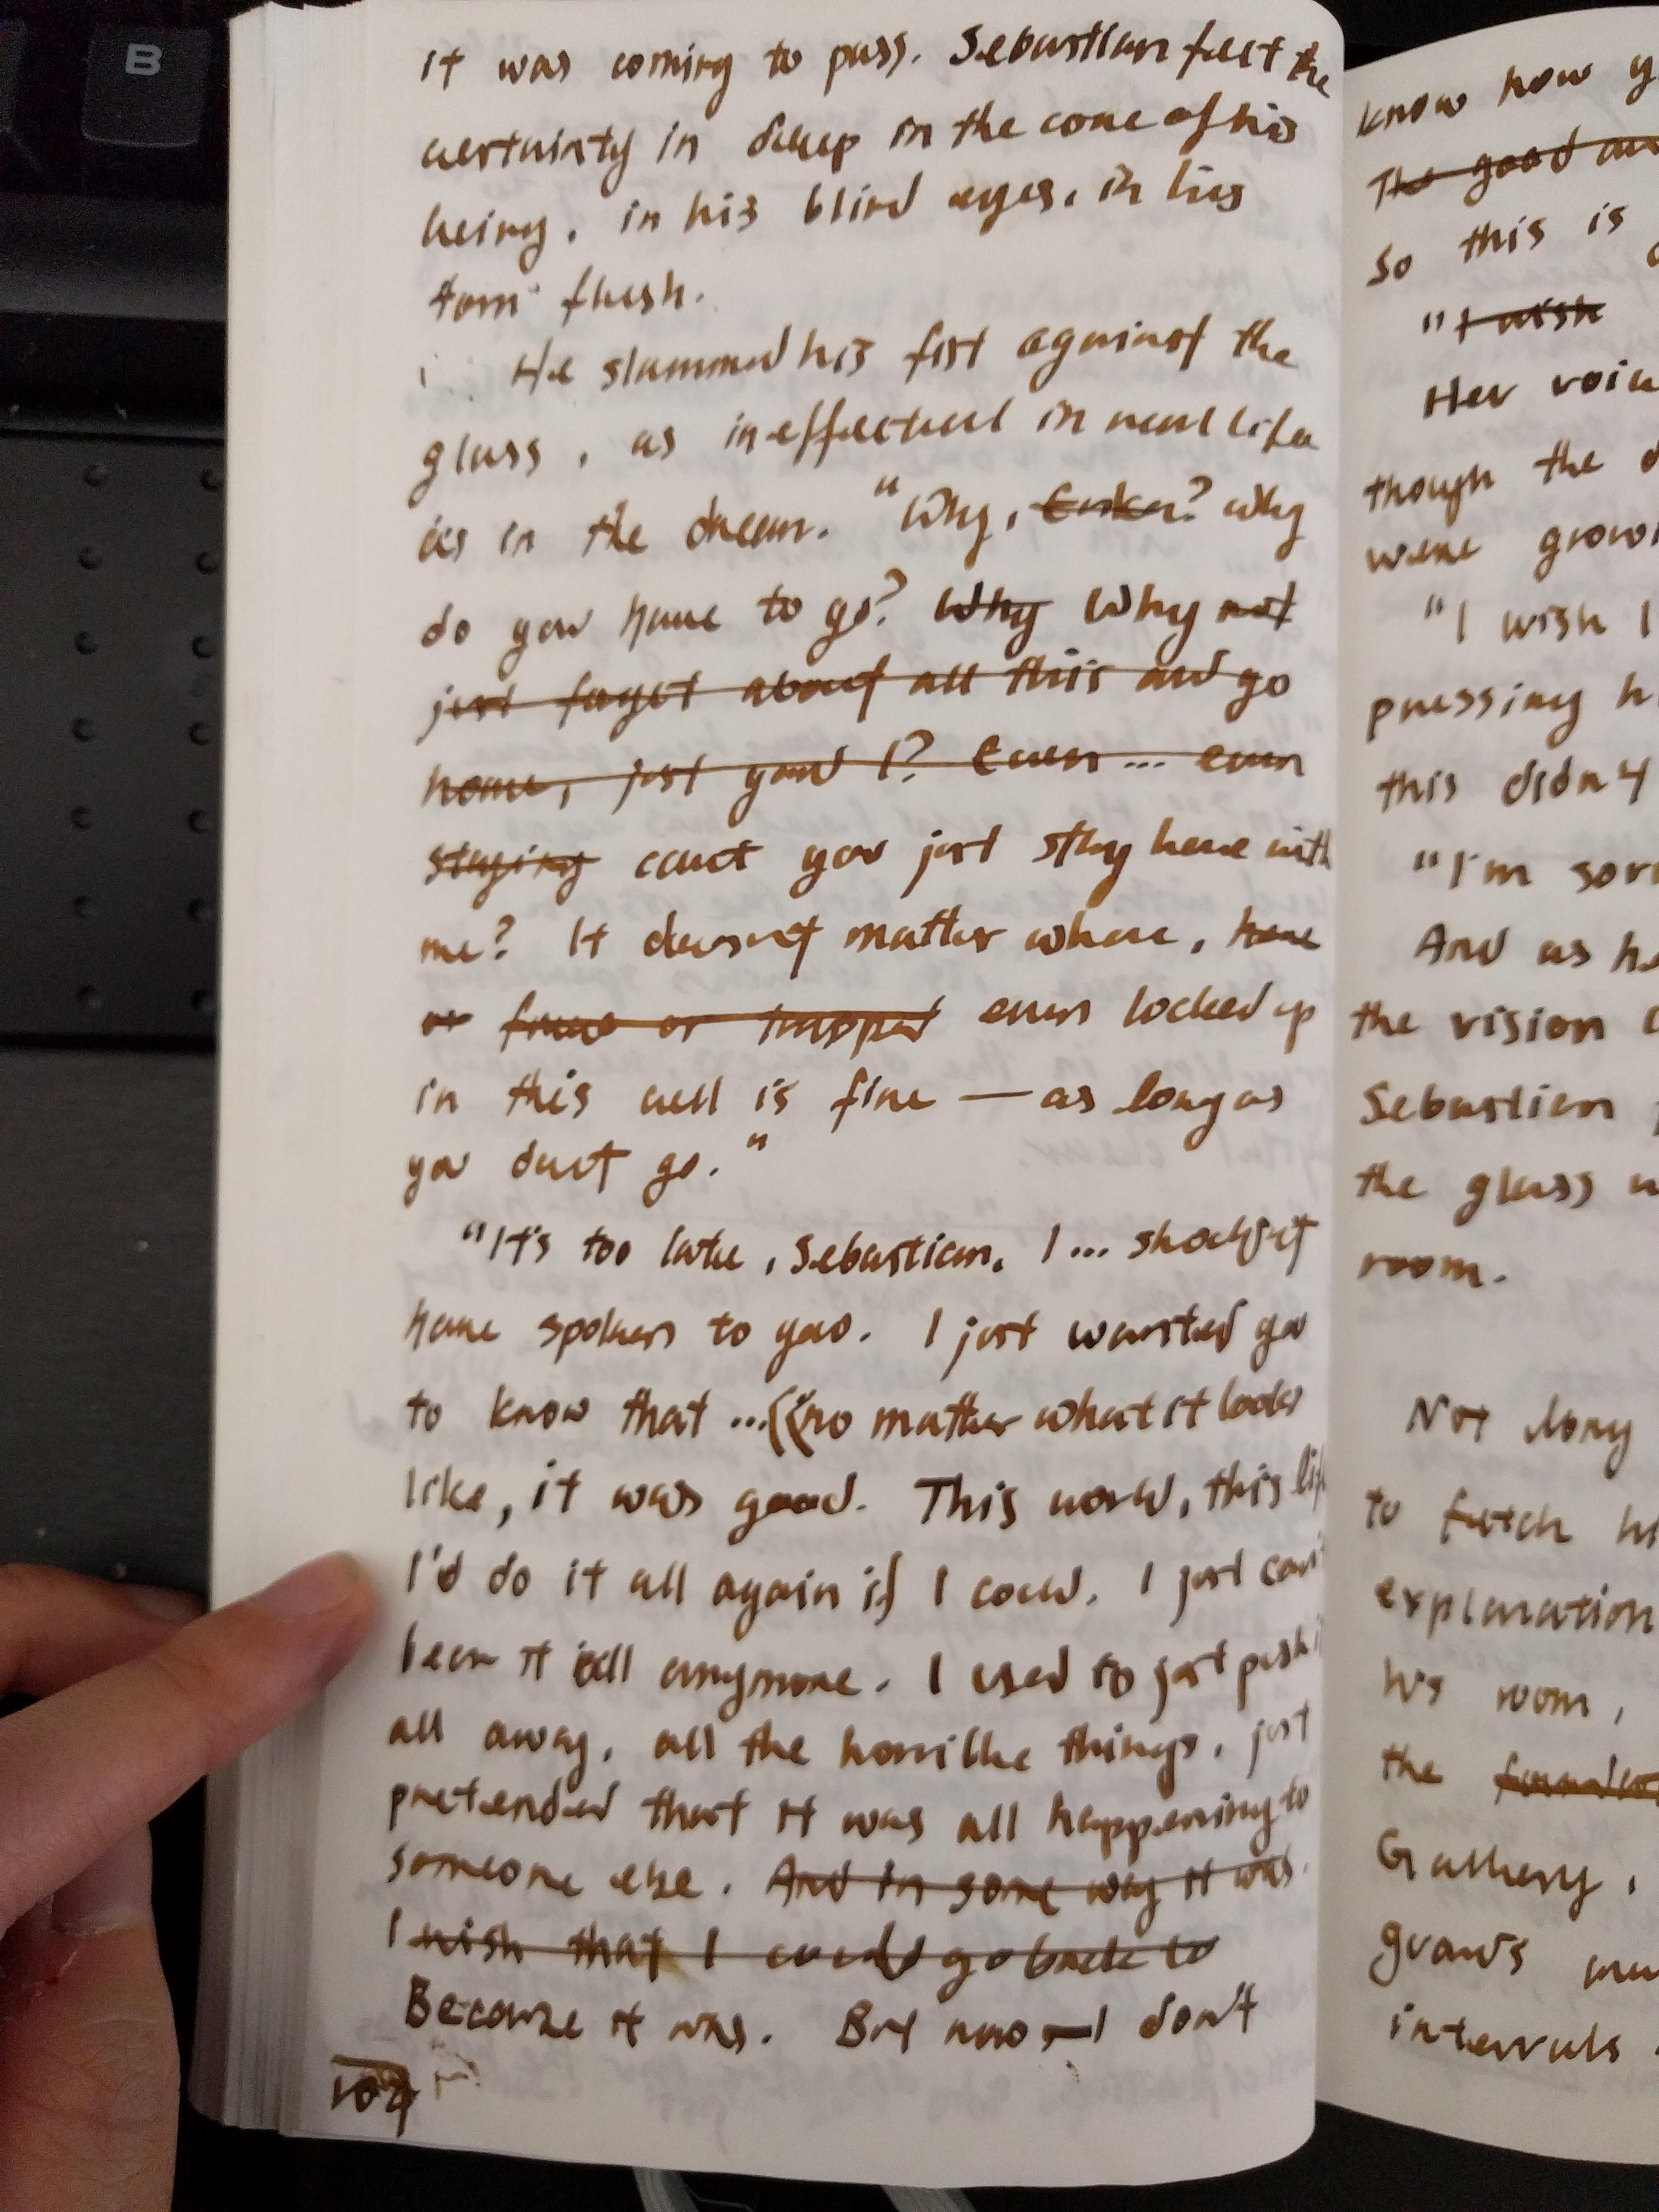 B
it was coming to pass. Sebastian felt the
certainty in deep in the core of his
being, in his blind eyes, in his
torn flesh.
He slammed his fist against the
glass, as ineffectual in real life
as in the dream. "Why, why
do you have to go? Why Why not
just forget about all this and go
home, just you and I? Even... even
staying can't you just stay here with
me? It doesn't matter where, here
or free or trapped even locked up
in this cell is fine — as long as
you don't go."
"It's too late, Sebastian. I... shouldn't
have spoken to you. I just wanted you
to know that ... no matter what it looks
like, it was good. This world, this life
I'd do it all again if I could. I just can't
bear it all anymore. I used to just push it
all away, all the horrible things, just
pretended that it was all happening to
someone else. And in some way it was.
I wish that I could go back to
Because it was. But now — I don't
104
know how y
The good
so this is
"I wish
Her voic
though the d
were growi
"I wish I
pressing h
this didn't
"I'm sorr
And as he
the vision
Sebastian
the glass
room.
Not long
to fetch hi
explanation
his room,
the
Gallery,
guards
intervals